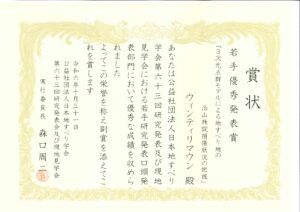 賞状
若手優秀発表賞
「3次元点群モデルによる地すべり地の
治山施設損傷状況の把握」
ウィンティリマウン 殿
あなたは公益社団法人日本地すべり
学会第六十三回研究発表会及び現地
見学会における若手研究発表口頭発
表部門において優秀な成績を収めら
れました
よってこの栄誉を称え副賞を添えてこ
れを賞します
令和六年十月三十一日
公益社団法人日本地すべり学会
第六十三回研究発表会及び現地見学会
実行委員長 森口周二